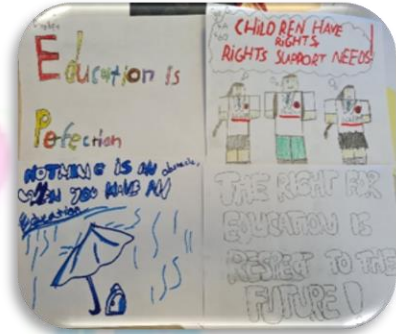 Education is
Pefection
CHILDREN HAVE
RIGHTS
RIGHTS SUPPORT NEEDS
NOTHING IS AN obstacle,
WHEN YOU HAVE AN
Education
THE RIGHT FOR
EDUCATION IS
RESPECT TO THE
FUTURE!